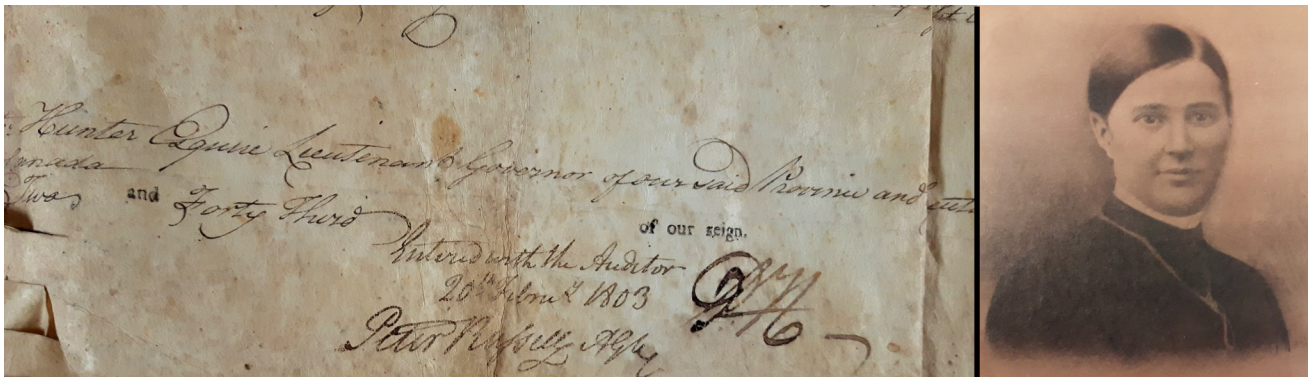 Hunter Esquire Lieutenant Governor of our said Province and
Canada
Two and Forty Third of our reign.
Entered with the Auditor
20th Febru'y 1803
Peter Russell
PH